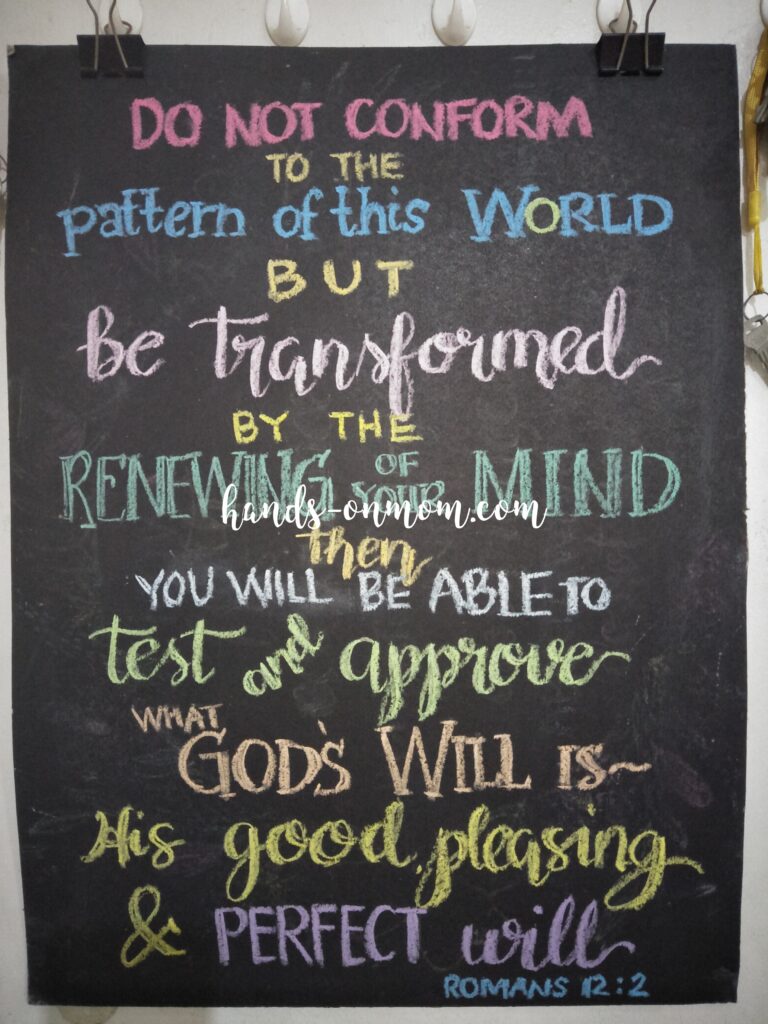 DO NOT CONFORM
TO THE
pattern of this WORLD
BUT
be transformed
BY THE
RENEWING OF YOUR MIND
hands-onmom.com
then
YOU WILL BE ABLE TO
test and approve
WHAT
GOD'S WILL IS~
His good, pleasing
& PERFECT will
ROMANS 12:2